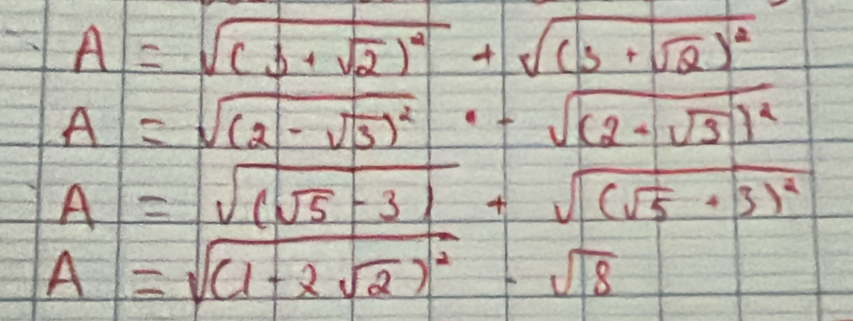 A = √(3 + √2)² + √(3 + √2)²
A = √(2 - √3)² - √(2 - √3)²
A = √(√5 - 3) + √(√5 + 3)²
A = √(1 - 2√2)² - √8